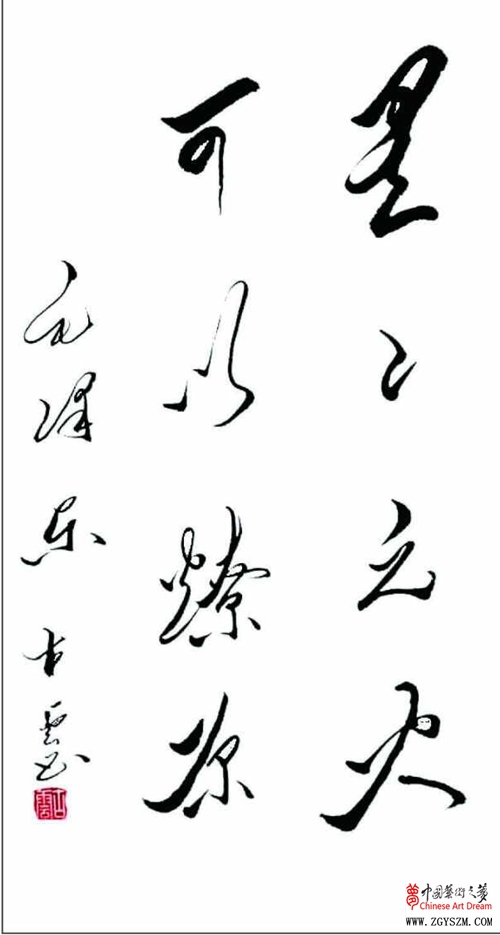 星〻之火
可以燎原
毛泽东 古雲书
古雲
夢 中國藝術之夢
Chinese Art Dream
www.ZGYSZM.com